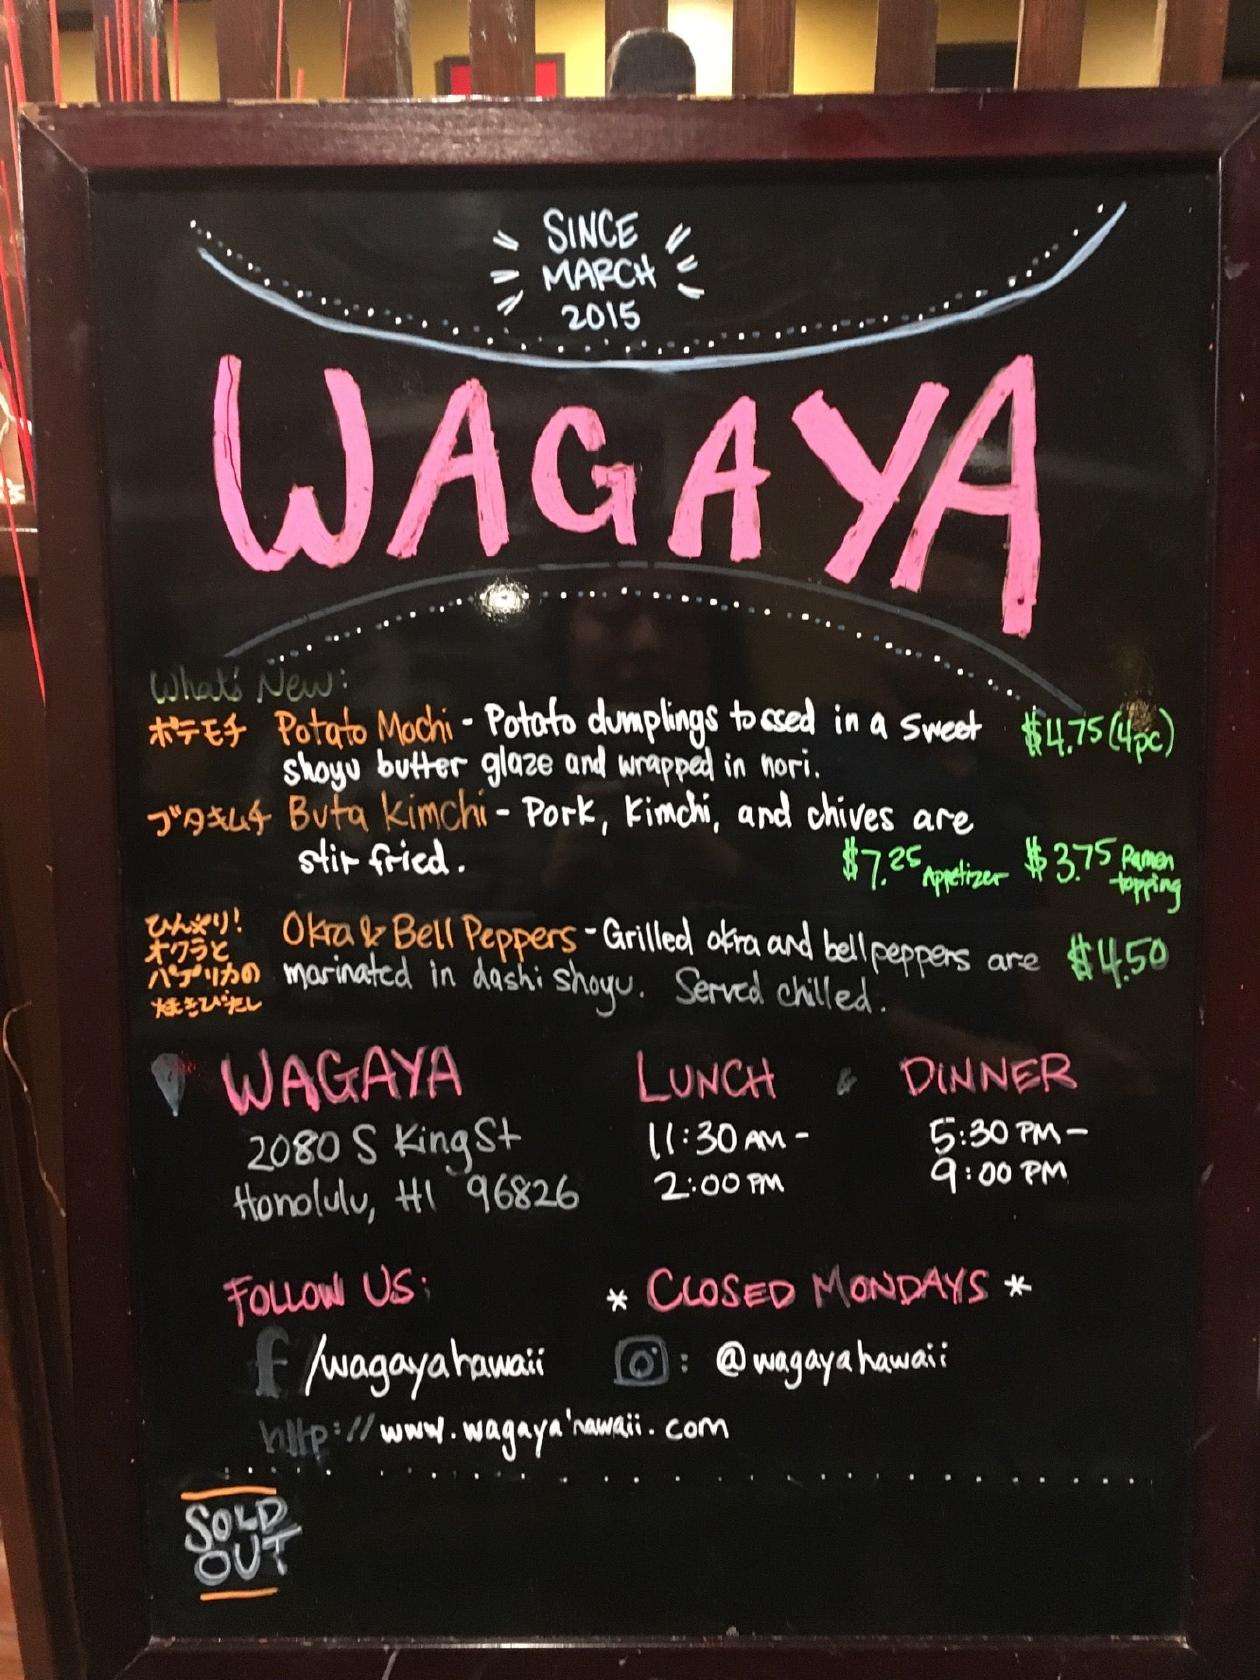 SINCE
MARCH
2015
WAGAYA
What's New:
ポテモチ Potato Mochi - Potato dumplings tossed in a sweet $4.75 (4pc)
shoyu butter glaze and wrapped in nori.
ブタキムチ Buta Kimchi - Pork, Kimchi, and chives are
stir fried. $7.25 Appetizer $3.75 Ramen topping
ひんやり!
オクラと
パプリカの
焼きびたし
Okra & Bell Peppers - Grilled okra and bell peppers are $4.50
marinated in dashi shoyu. Served chilled.
WAGAYA LUNCH & DINNER
2080 S King St 11:30 AM - 5:30 PM -
Honolulu, HI 96826 2:00 PM 9:00 PM
FOLLOW US: * CLOSED MONDAYS *
f /wagayahawaii : @wagayahawaii
http://www.wagayahawaii.com
SOLD
OUT